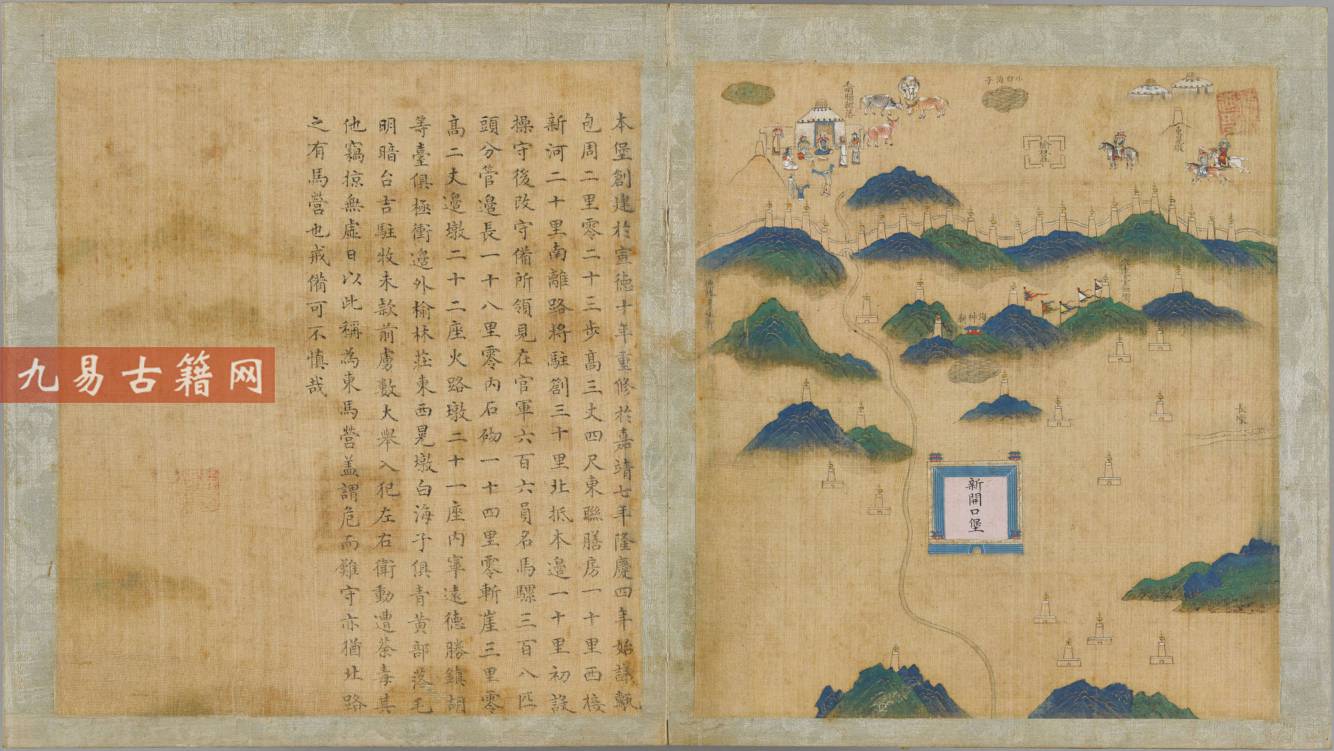 本堡創建於宣德十年重修於嘉靖七年隆慶四年始議甎
包周二里零二十三步高三丈四尺東聯膳房一十里西接
新河二十里南離路將駐劄三十里北抵本邊一十里初設
操守後改守備所領見在官軍六百六員名馬騾三百八匹
頭分管邊長一十八里零內石砌一十四里零斬崖三里零
高二丈邊墩二十二座火路墩二十一座內寧遠德勝鎮胡
等臺俱極衝邊外榆林莊東西晃墩白海子俱青黃部落毛
明暗台吉駐牧未款前虜數大舉入犯左右衛動遭荼毒其
他竊掠無虛日以此稱為東馬營蓋謂危而難守亦猶北路
之有馬營也戒備可不慎哉
小白海子
新開口堡
九易古籍网